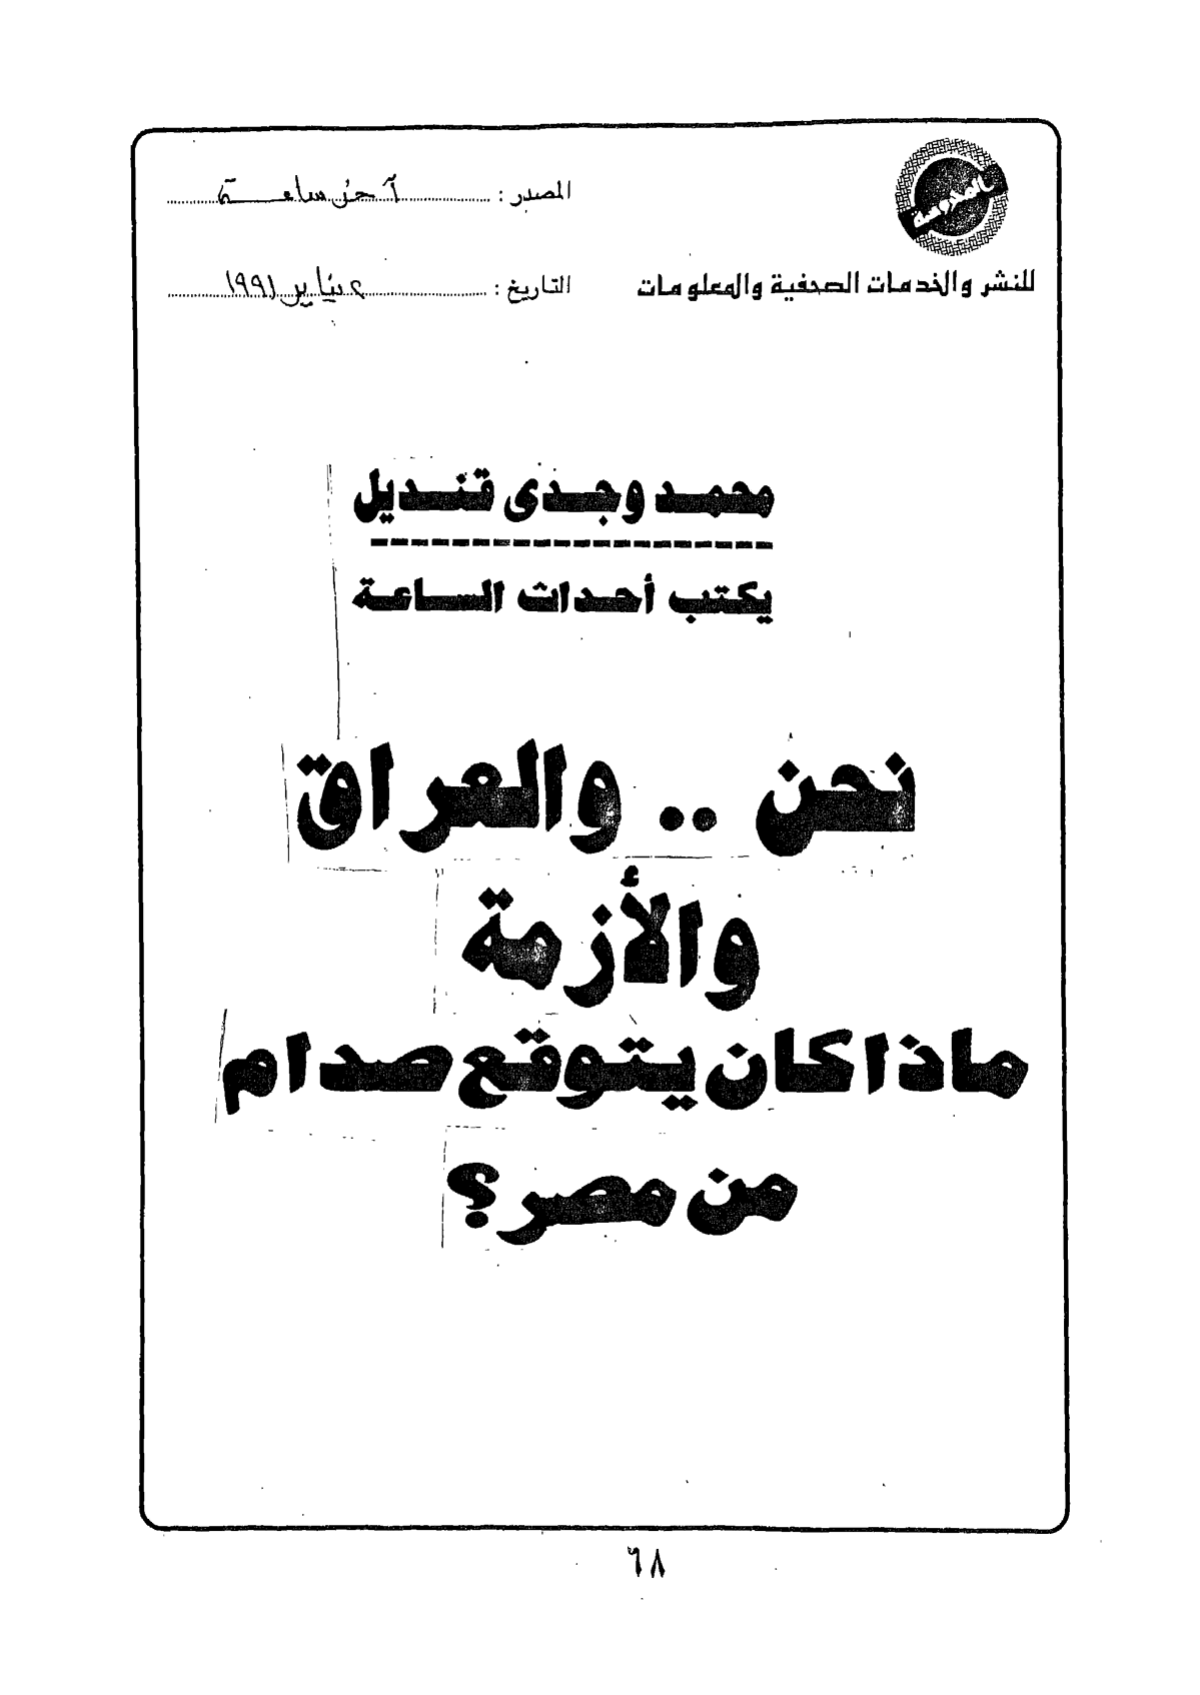 المحروسة
المصدر : آخر ساعة
للنشر والخدمات الصحفية والمعلومات
التاريخ : ٢ يناير ١٩٩١
محمد وجدى قنديل
يكتب أحداث الساعة
نحن .. والعراق
والأزمة
ماذا كان يتوقع صدام
من مصر ؟
٦٨